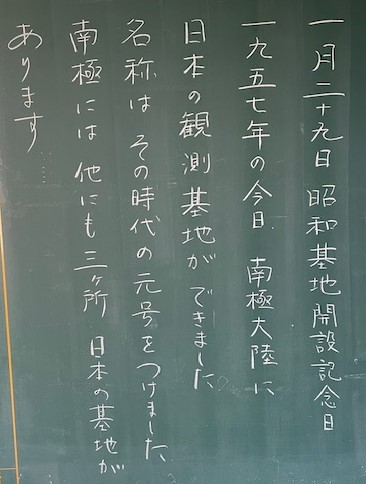 一月二十九日 昭和基地開設記念日
一九五七年の今日、南極大陸に
日本の観測基地ができました
名称は その時代の元号をつけました、
南極には 他にも三ヶ所 日本の基地が
あります……